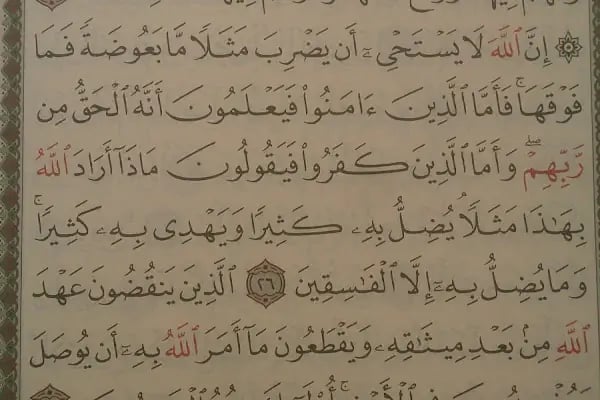 ۞ إِنَّ ٱللَّهَ لَا يَسۡتَحۡيِۦٓ أَن يَضۡرِبَ مَثَلٗا مَّا بَعُوضَةٗ فَمَا
فَوۡقَهَاۚ فَأَمَّا ٱلَّذِينَ ءَامَنُواْ فَيَعۡلَمُونَ أَنَّهُ ٱلۡحَقُّ مِن
رَّبِّهِمۡۖ وَأَمَّا ٱلَّذِينَ كَفَرُواْ فَيَقُولُونَ مَاذَآ أَرَادَ ٱللَّهُ
بِهَٰذَا مَثَلٗاۘ يُضِلُّ بِهِۦ كَثِيرٗا وَيَهۡدِي بِهِۦ كَثِيرٗاۚ
وَمَا يُضِلُّ بِهِۦٓ إِلَّا ٱلۡفَٰسِقِينَ ٢٦ ٱلَّذِينَ يَنقُضُونَ عَهۡدَ
ٱللَّهِ مِنۢ بَعۡدِ مِيثَٰقِهِۦ وَيَقۡطَعُونَ مَآ أَمَرَ ٱللَّهُ بِهِۦٓ أَن يُوصَلَ